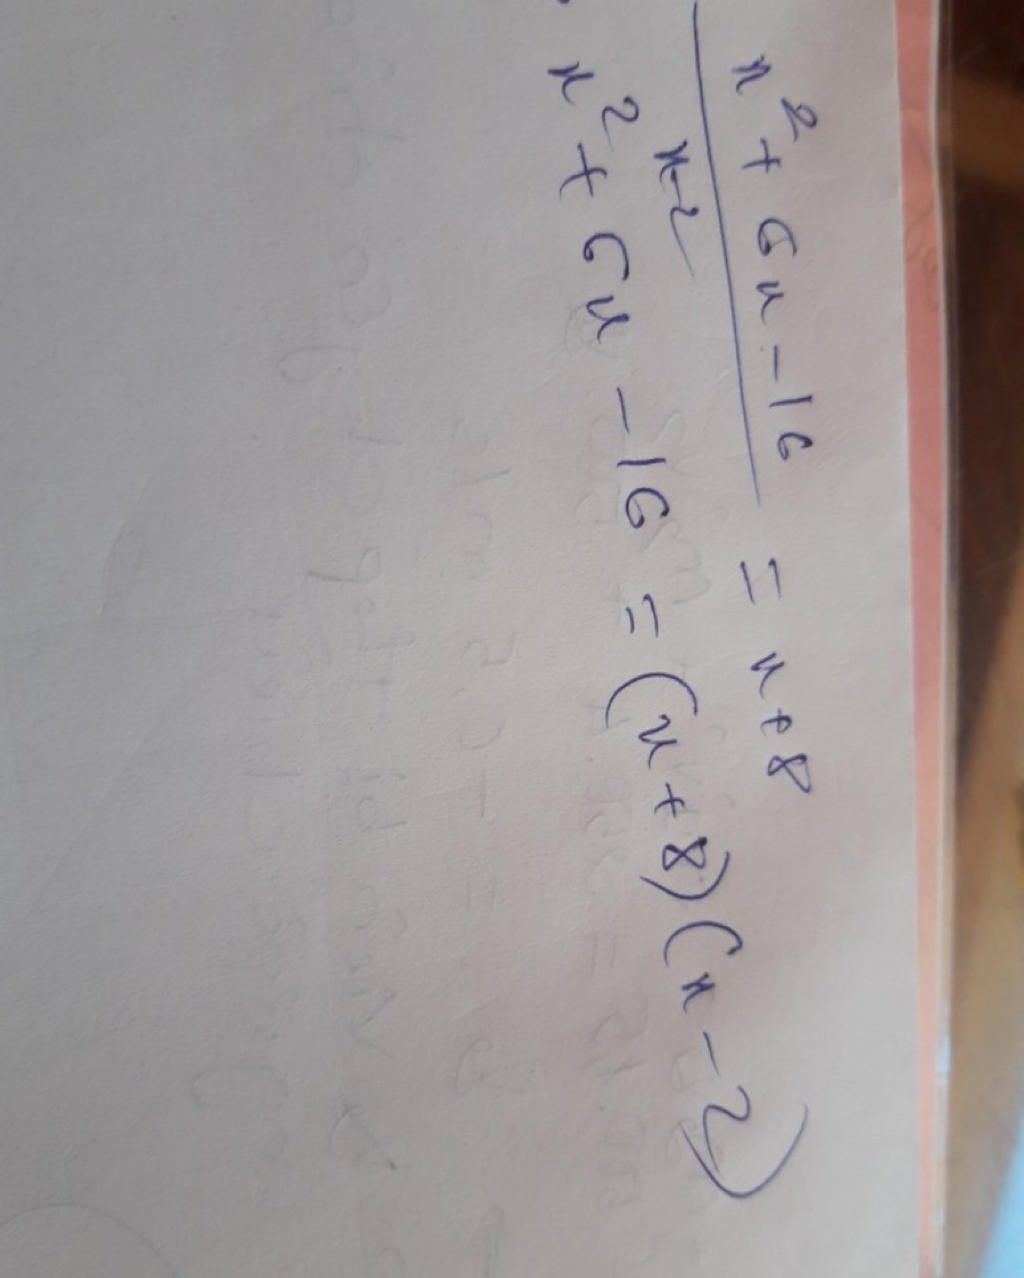 x² + 6x - 16 = x + 8
x-2
x² + 6x - 16 = (x + 8)(x - 2)